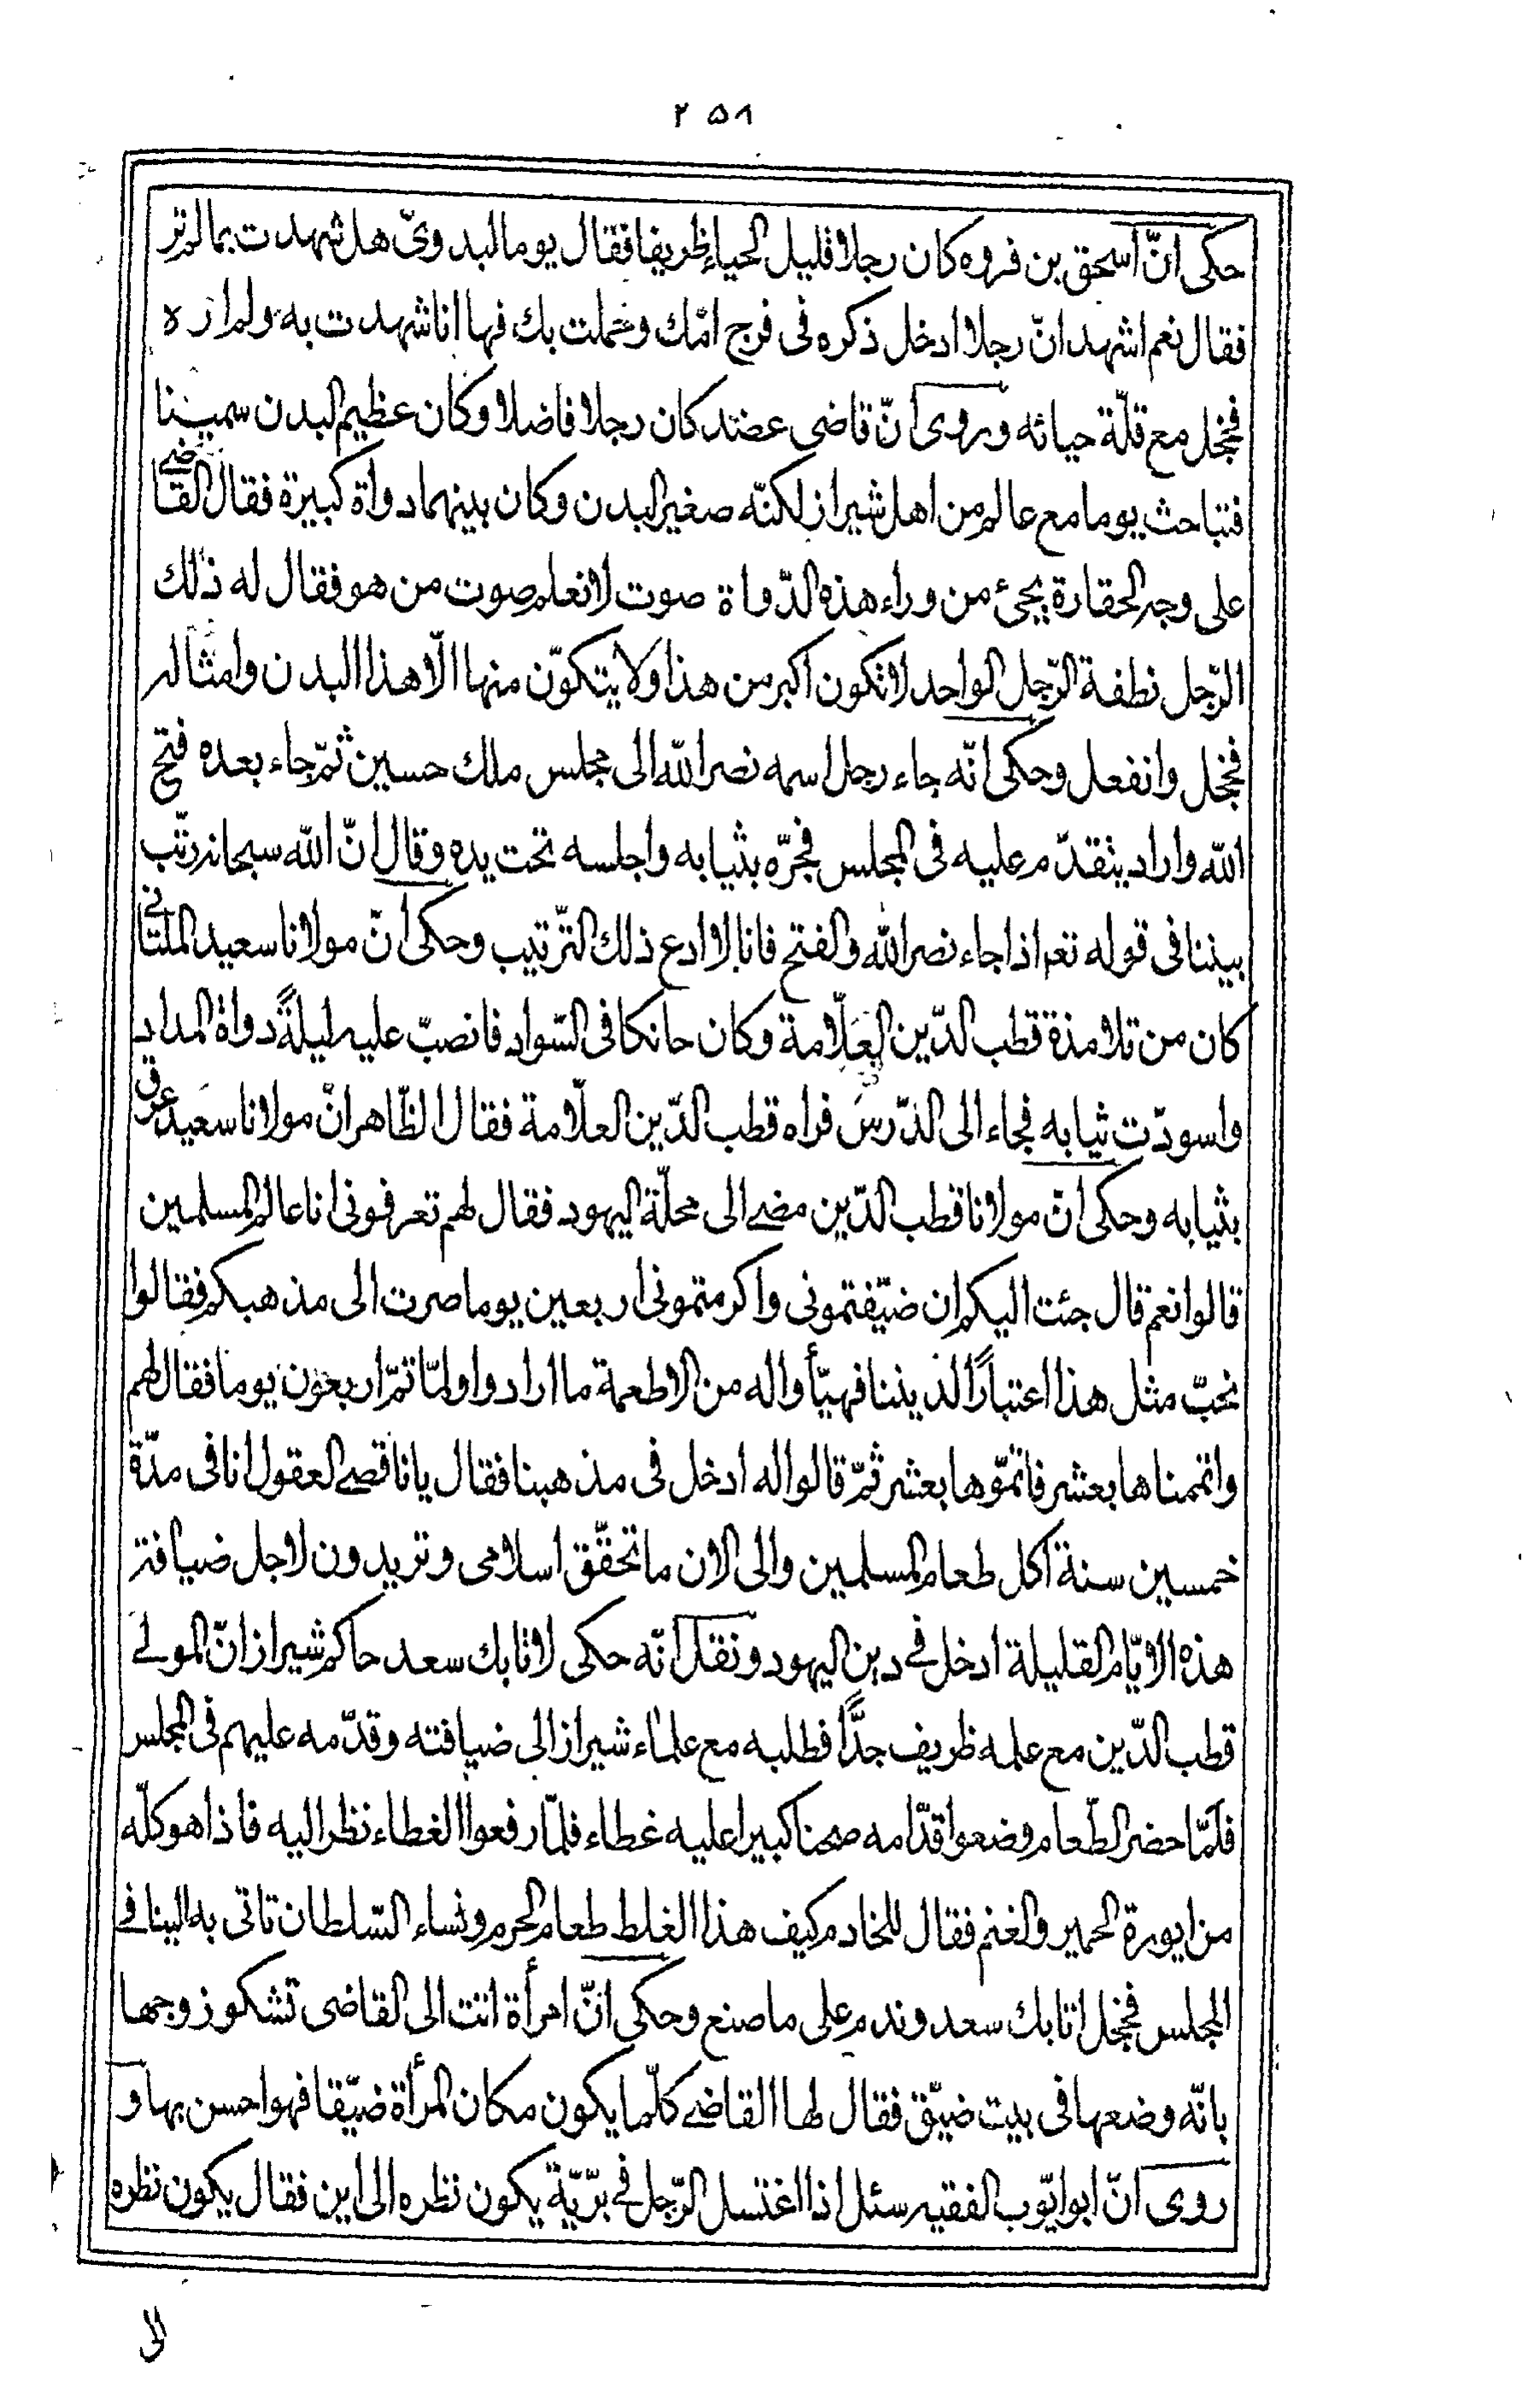 ٢٥٨
حكى انّ اسحق بن فروه كان رجلا قليل الحياء ظريفا فقال يوما لبدوىّ هل شهدت بما لم تر
فقال نعم اشهد انّ رجلا ادخل ذكره فى فرج امّك وحملت بك فها انا شهدت به ولم اره
فخجل مع قلّة حيائه وروى انّ قاضى عضد كان رجلا فاضلا وكان عظيم البدن سمينا
فتباحث يوما مع عالم من اهل شيراز لكنّه صغير البدن وكان بينهما دواة كبيرة فقال القاضى
على وجه الحقارة يجئ من وراء هذه الدّواة صوت لا نعلم صوت من هو فقال له ذلك
الرّجل نطفة الرّجل الواحد لا تكون اكبر من هذا ولا يتكوّن منها الّا هذا البدن وامثاله
فخجل وانفعل وحكى انّه جاء رجل اسمه نصر اللّه الى مجلس ملك حسين ثمّ جاء بعده فتح
اللّه واراد يتقدّم عليه فى المجلس فجرّه بثيابه واجلسه تحت يده وقال انّ اللّه سبحانه رتّب
بيننا فى قوله تعم اذا جاء نصر اللّه والفتح فانا لا ادع ذلك التّرتيب وحكى انّ مولانا سعيد الملتانى
كان من تلامذة قطب الدّين العلّامة وكان حانكا فى السّواد فانصبّ عليه ليلةً دواة المداد
واسودّت ثيابه فجاء الى الدّرس فراه قطب الدّين العلّامة فقال الظّاهر انّ مولانا سعيد عرق
بثيابه وحكى انّ مولانا قطب الدّين مضى الى محلّة اليهود فقال لهم تعرفونى انا عالم المسلمين
قالوا نعم قال جئت اليكم ان ضيّفتمونى واكرمتمونى اربعين يوما صرت الى مذهبكم فقالوا
نحبّ مثل هذا اعتبارًا لديننا فهيّأوا له من الاطعمة ما ارادوا ولمّا تمّ اربعون يوما فقال لهم
واتممناها بعشر فاتمّوها بعشر ثمّ قالوا له ادخل فى مذهبنا فقال يا ناقصى العقول انا فى مدّة
خمسين سنة آكل طعام المسلمين والى الان ما تحقّق اسلامى وتريدون لاجل ضيافة
هذه الايّام القليلة ادخل فى دين اليهود ونقل انّه حكى لاتابك سعد حاكم شيراز انّ المولى
قطب الدّين مع علمه ظريف جدًّا فطلبه مع علماء شيراز الى ضيافته وقدّمه عليهم فى المجلس
فلمّا حضر الطّعام وضعوا قدّامه صحنا كبيرا عليه غطاء فلمّا رفعوا الغطاء نظر اليه فاذا هو كلّه
من ايورة الحمير والغنم فقال للخادم كيف هذا الغلط طعام الحرم ونساء السّلطان تاتى به الينا فى
المجلس فخجل اتابك سعد وندم على ما صنع وحكى انّ امرأة اتت الى القاضى تشكو زوجها
بانّه وضعها فى بيت ضيّق فقال لها القاضى كلّما يكون مكان المرأة ضيّقا فهو احسن بها و
روى انّ ابو ايّوب الفقيه سئل اذا اغتسل الرّجل فى برّيّة يكون نظره الى اين فقال يكون نظره
الى